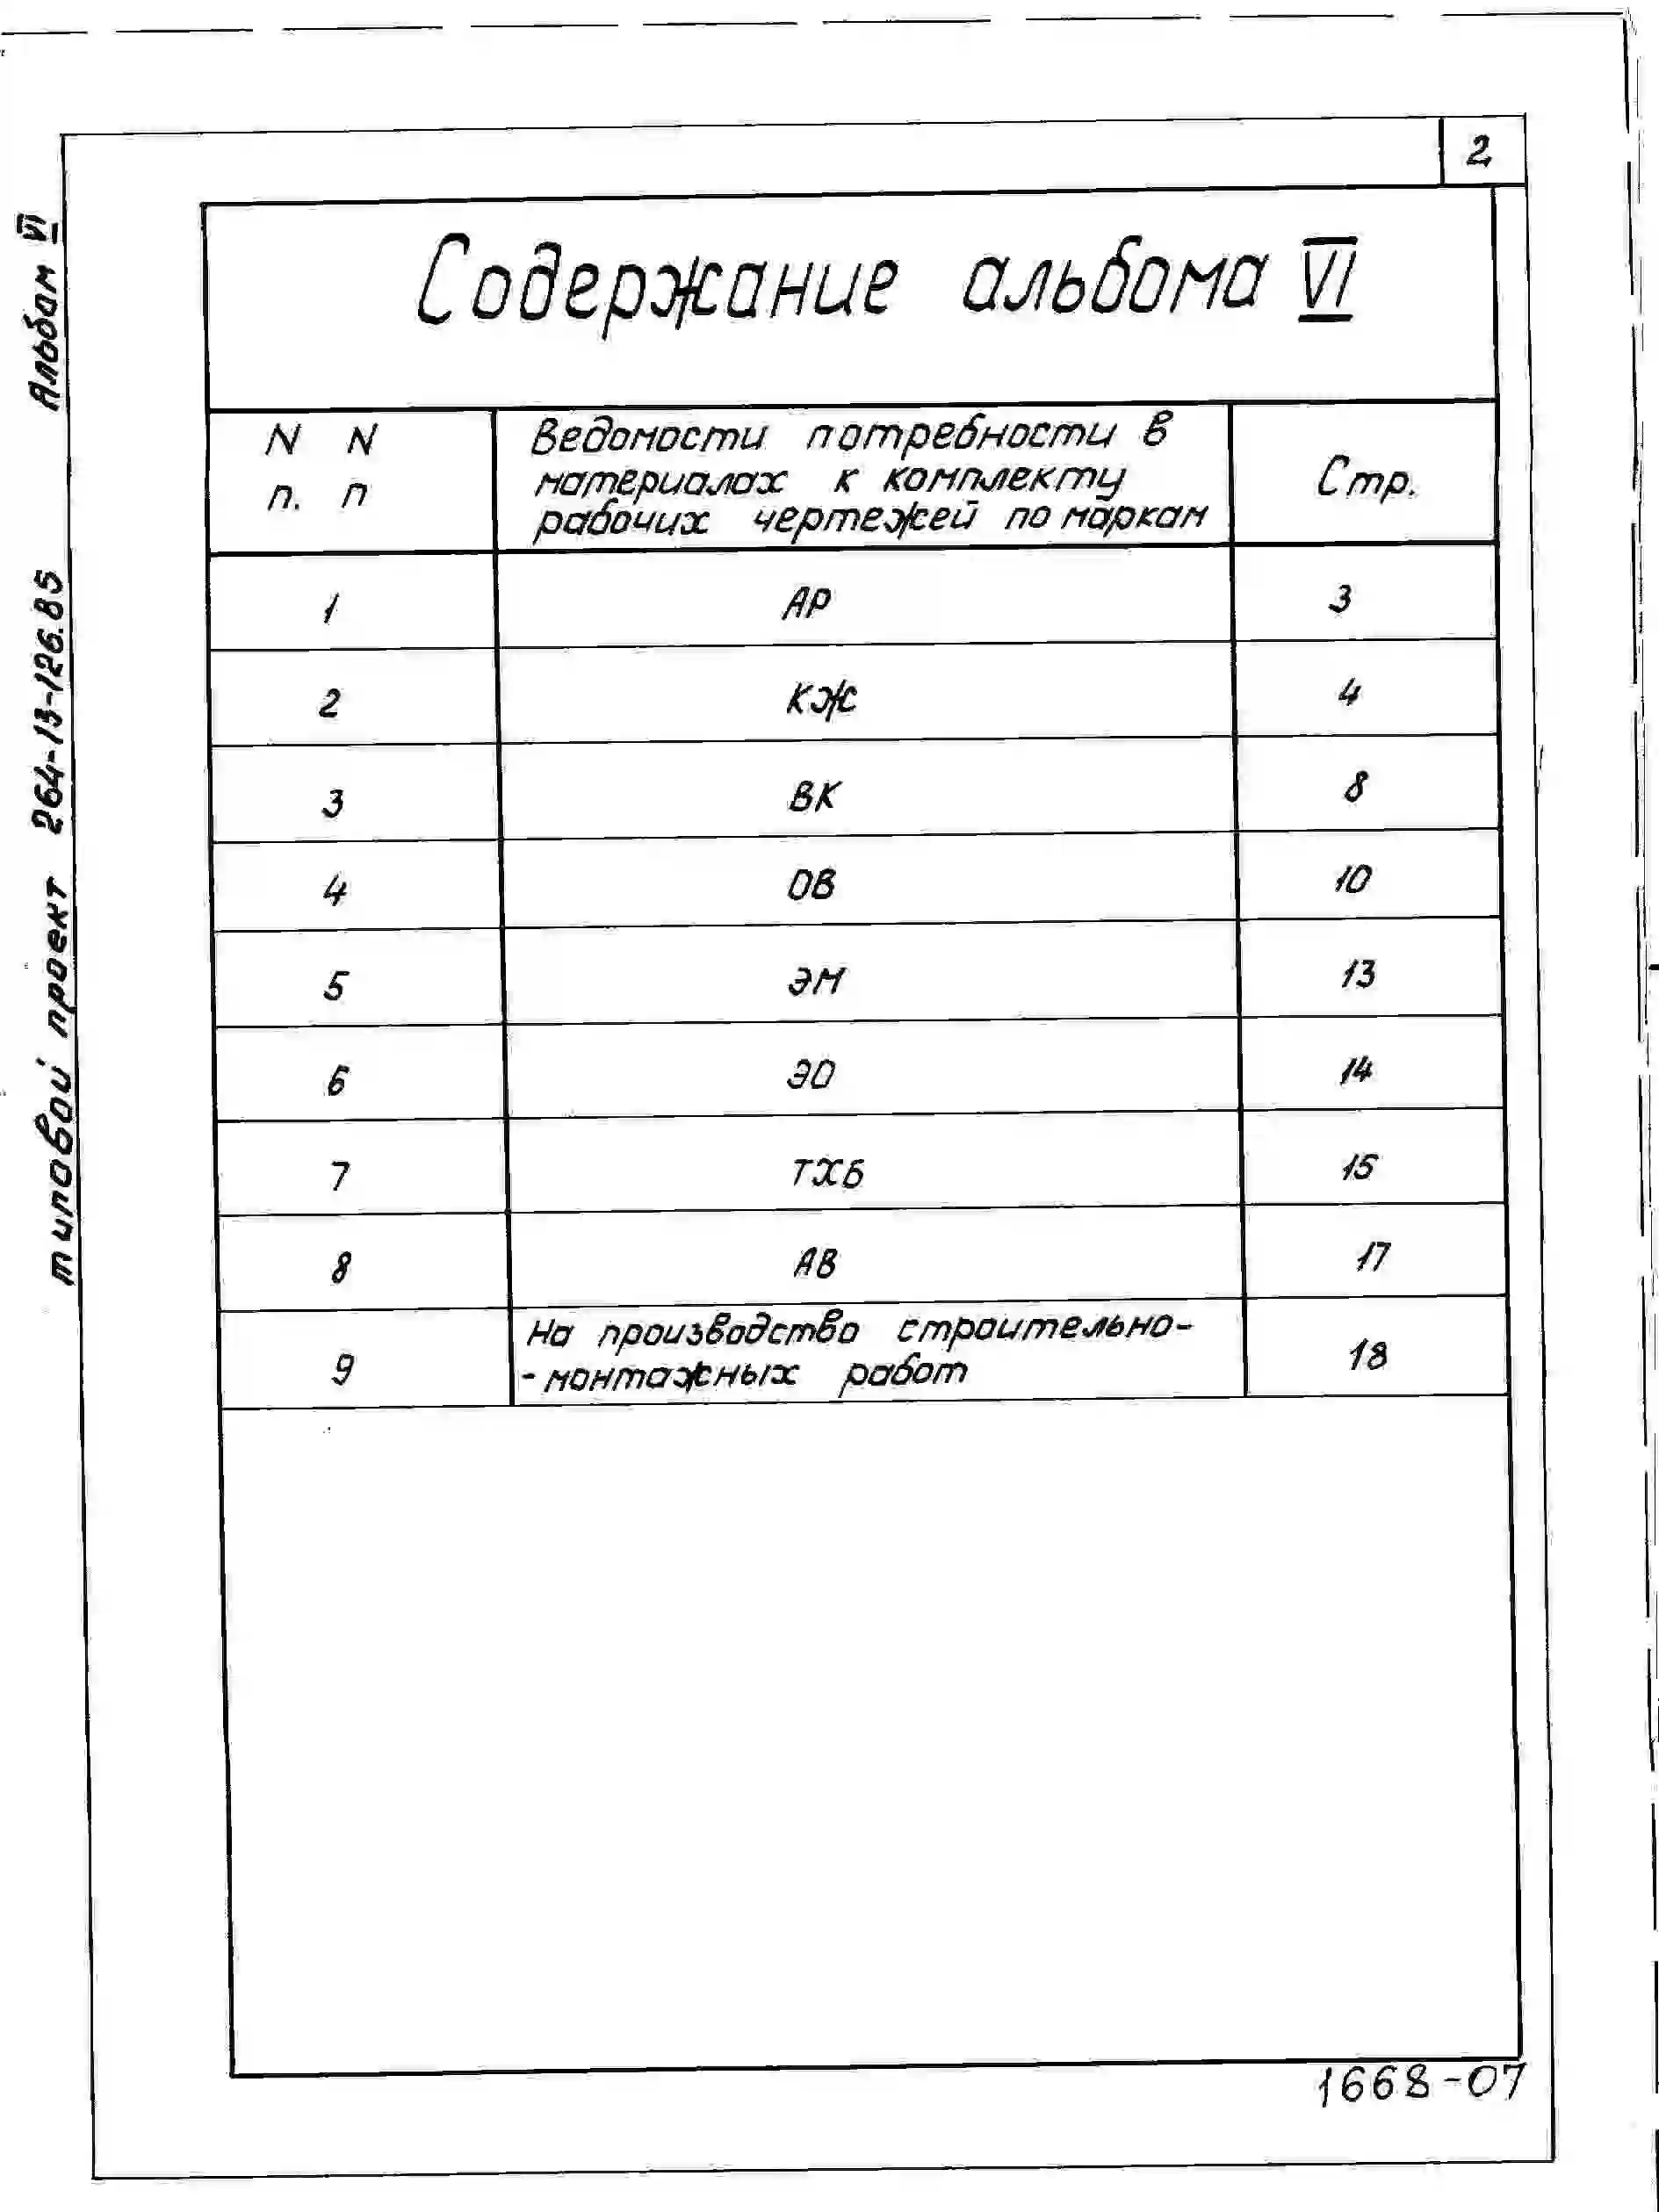 2
Содержание альбома VI
N N
п. п
Ведомости потребности в
материалах к комплекту
рабочих чертежей по маркам
Стр.
1 АР 3
2 КЖ 4
3 ВК 8
4 ОВ 10
5 ЭМ 13
6 ЭО 14
7 ТХБ 15
8 АВ 17
9 На производство строительно-
-монтажных работ 18
1668-07
типовой проект 264-13-126.85 Альбом VI